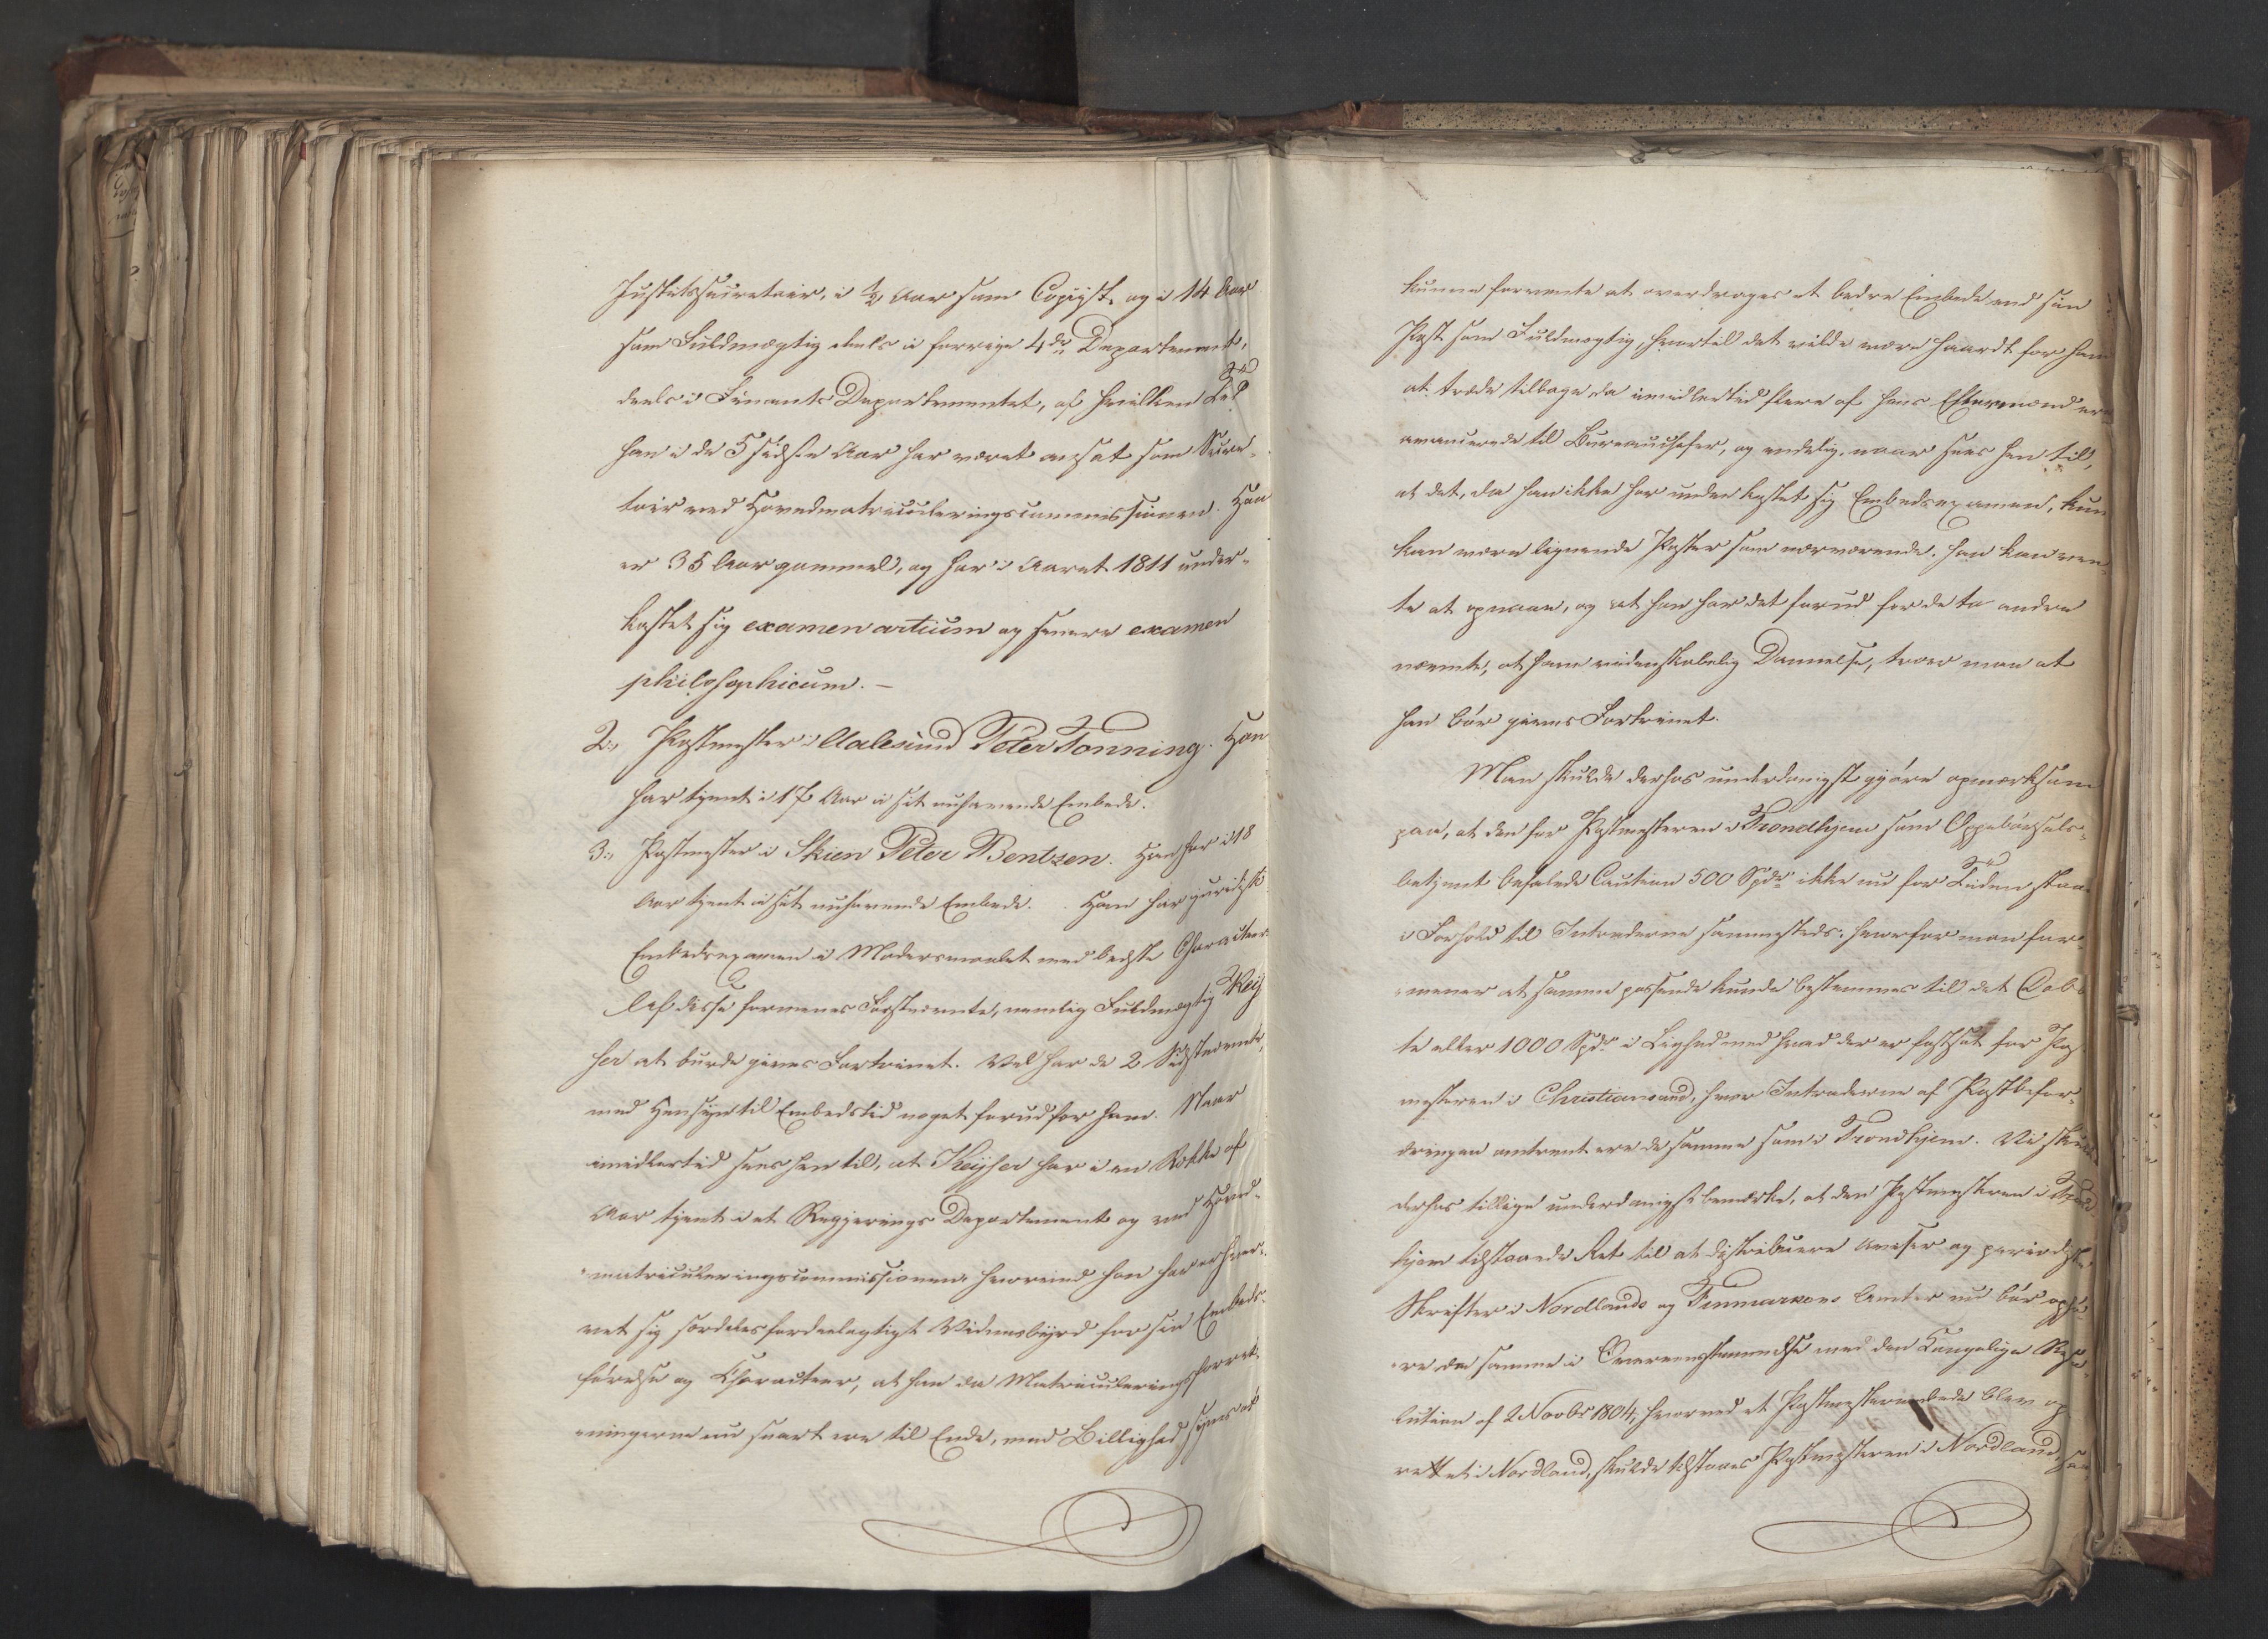 Justitssecretair, i ½ Aar som Copiist, og i 14 Aar
som Fuldmægtig deels i forrige 4de Departement,
deels i Finants Departementet, af hvilken Tid
han i de 5 sidste Aar har været ansat som Secre-
tair ved Hovedmatriculeringscommissionen. Han
er 35 Aar gammel, og har i Aaret 1811 under-
kastet sig examen artium og senere examen
philosophicum. -
2., Postmester i Aalesund Peter Tonning. Han
har tjent i 17 Aar i sit nuhavende Embede.
3., Postmester i Skien Peter Bentzen. Han har i 18
Aar tjent i sit nuhavende Embede. Han har juridisk
Embedsexamen i Modersmaalet med bedste Characteer.
Af disse formenes Førstnævnte, nemlig Fuldmægtig Key
ser at burde gives Fortrinet. Vel har de 2 Sidstnævnte,
med Hensyn til Embedstid noget forud for ham. Naar
imidlertid sees hen til, at Keyser har i en Række af
Aar tjent i et Regjerings Departement og ved Hoved-
matriculeringscommissionen, hvorved han har erhver-
vet sig særdeles fordeelagtigt Vidnesbyrd for sin Embeds-
førelse og Characteer, at han da Matriculeringsforret-
ningerne nu snart ere til Ende, med Billighed synes at
kunne forvente at overdrages et bedre Embede end sin
Post som Fuldmægtig, hvortil det vilde være haardt for ham
at træde tilbage da imidlertid flere af hans Eftermænd ere
avancerede til Bureauchefer, og endelig, naar sees hen til,
at det, da han ikke har underkastet sig Embedsexamen, kun
kan være lignende Poster som nærværende, han kan ven-
te at opnaae, og at han har det forud for de to andre
nævnte, at have videnskabelig Dannelse, troer man at
han bør gives Fortrinet.
Man skulde derhos underdanigst gjøre opmærksom
paa, at den for Postmesteren i Trondhjem som Oppebørsels-
betjent befalede Caution 500 Spdr ikke nu for Tiden staaer
i Forhold til Intraderne sammesteds, hvorfor man for-
mener at samme passende kunde bestemmes til det Dob-
te eller 1000 Spdr i Lighed med hvad der er fastsat for Post
mesteren i Christiansand, hvor Intraderne af Postbefor-
dringen omtrent ere de samme som i Trondhjem. Vi skulle
derhos tillige underdanigst bemærke, at den Postmesteren i Trond-
hjem tilstaaede Ret til at distribuere Aviser og periodiske
Skrifter i Nordlands og Finmarkens Amter nu bør ophø-
re da samme i Overeensstemmelse med den Kongelige Reso-
lution af 2 Novbr 1804, hvorved et Postmesterembede blev op
rettet i Nordland, skulde tilstaaes Postmesteren i Nordland,